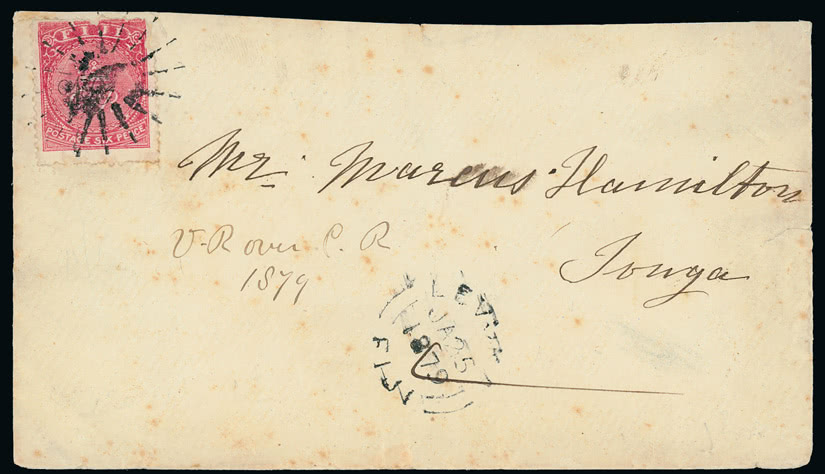 FIJI
POSTAGE SIX PENCE
Mr. Marcus Hamilton
Tonga
V-R over C. R
1879
JA 25
1879
FIJI